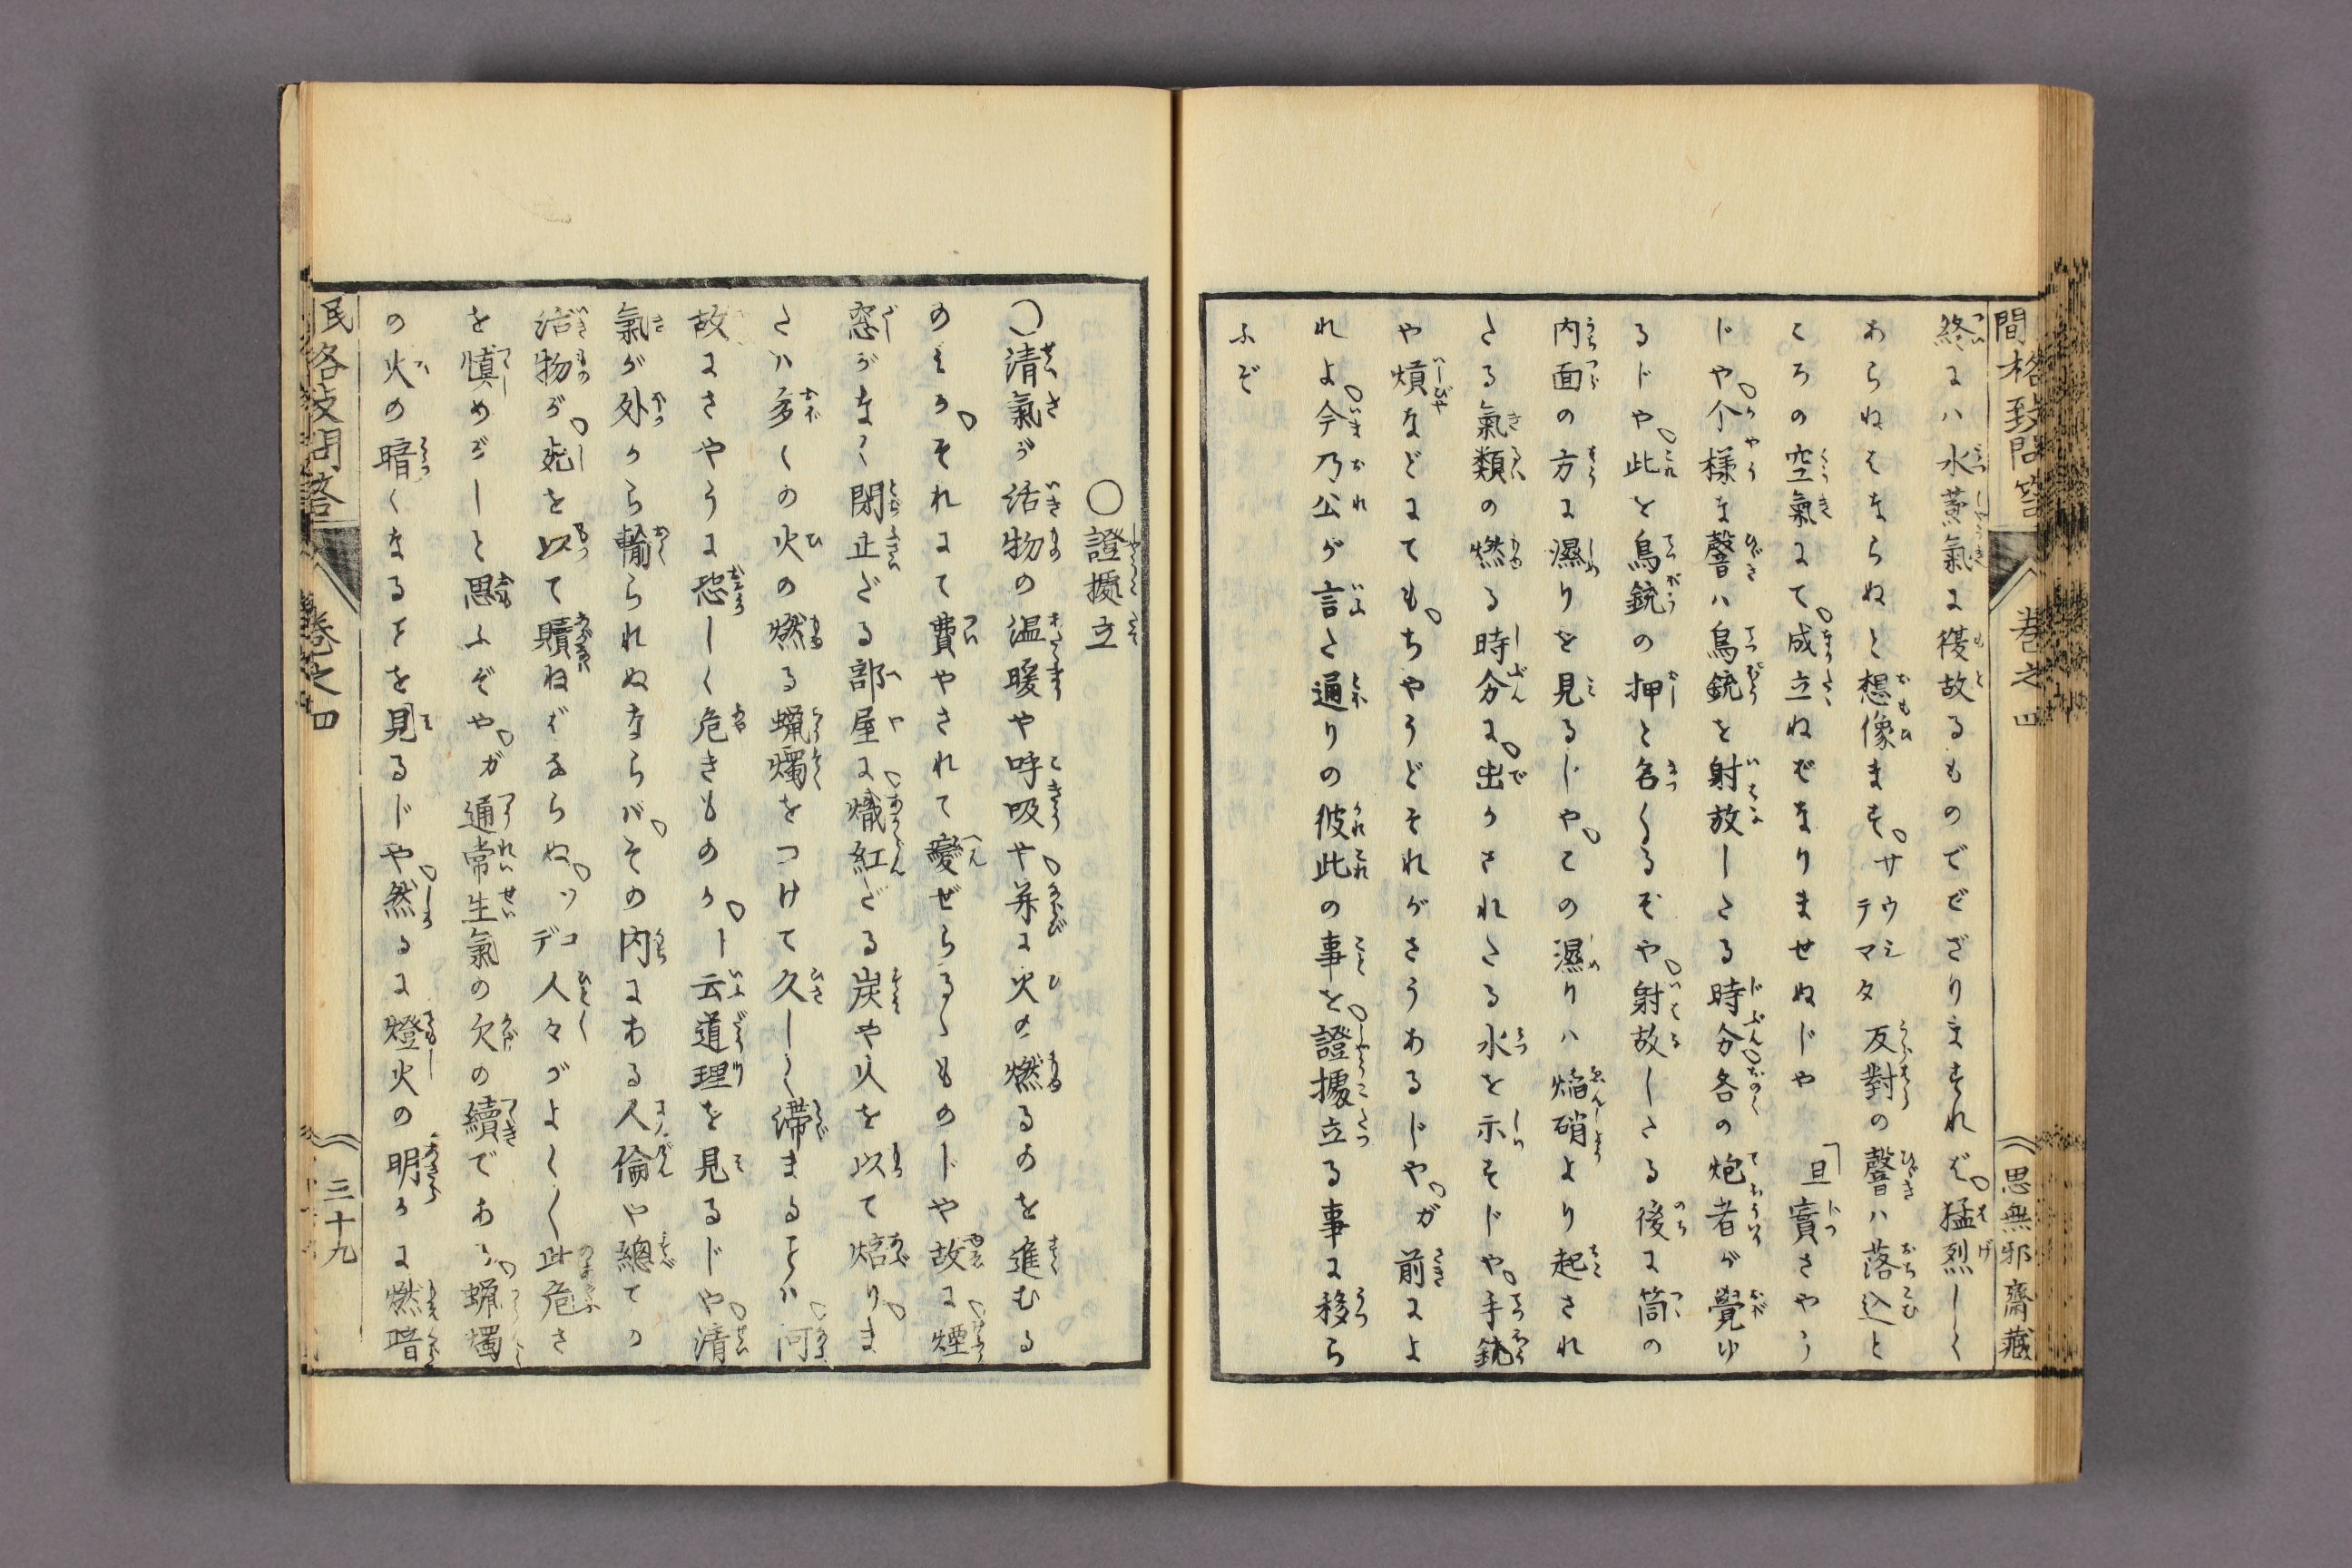 民間格致問答
巻之四
思無邪齋藏
終にハ水蒸氣に復故るものでござりますれば猛烈しく
あらねばならぬと想像ます サウシテマタ 反對の聲ハ落込と
ころの空氣にて成立ねばなりませぬじや 「旦實さやう
じや个様な聲ハ鳥銃を射放したる時分各の炮者が覺ゆ
るじや此を鳥銃の押と名くるぞや射放したる後に筒の
内面の方に濕りを見るじやこの濕りハ焔硝より起され
たる氣類の燃る時分に出かされたる水を示すじや手銃
や熕などにてもちやうどそれがさうあるじやガ前によ
れよ今乃公が言た通りの彼此の事を證據立る事に移ら
ふぞ
〇證據立
〇清氣が活物の温暖や呼吸や并に火の燃るのを進むる
のみかそれにて費やされて變ぜらるゝものじや故に煙
窓がなく閉止ざる部屋に熾紅ざる炭や火を以て焙りま
たハ多くの火の燃る蝋燭をつけて久しく滯まるをハ何
故にさやうに恐しく危きものかト云道理を見るじや清
氣が外から輸られぬならバその内にある人倫や總ての
活物が死を以て贖ねばならぬ ソコデ人々がよく〳〵此危さ
を慎めがしと思ふぞや ガ通常生氣の欠の續である蝋燭
の火の暗くなるを見るじや然るに燈火の明かに燃暗
民間格致問答
巻之四
三十九